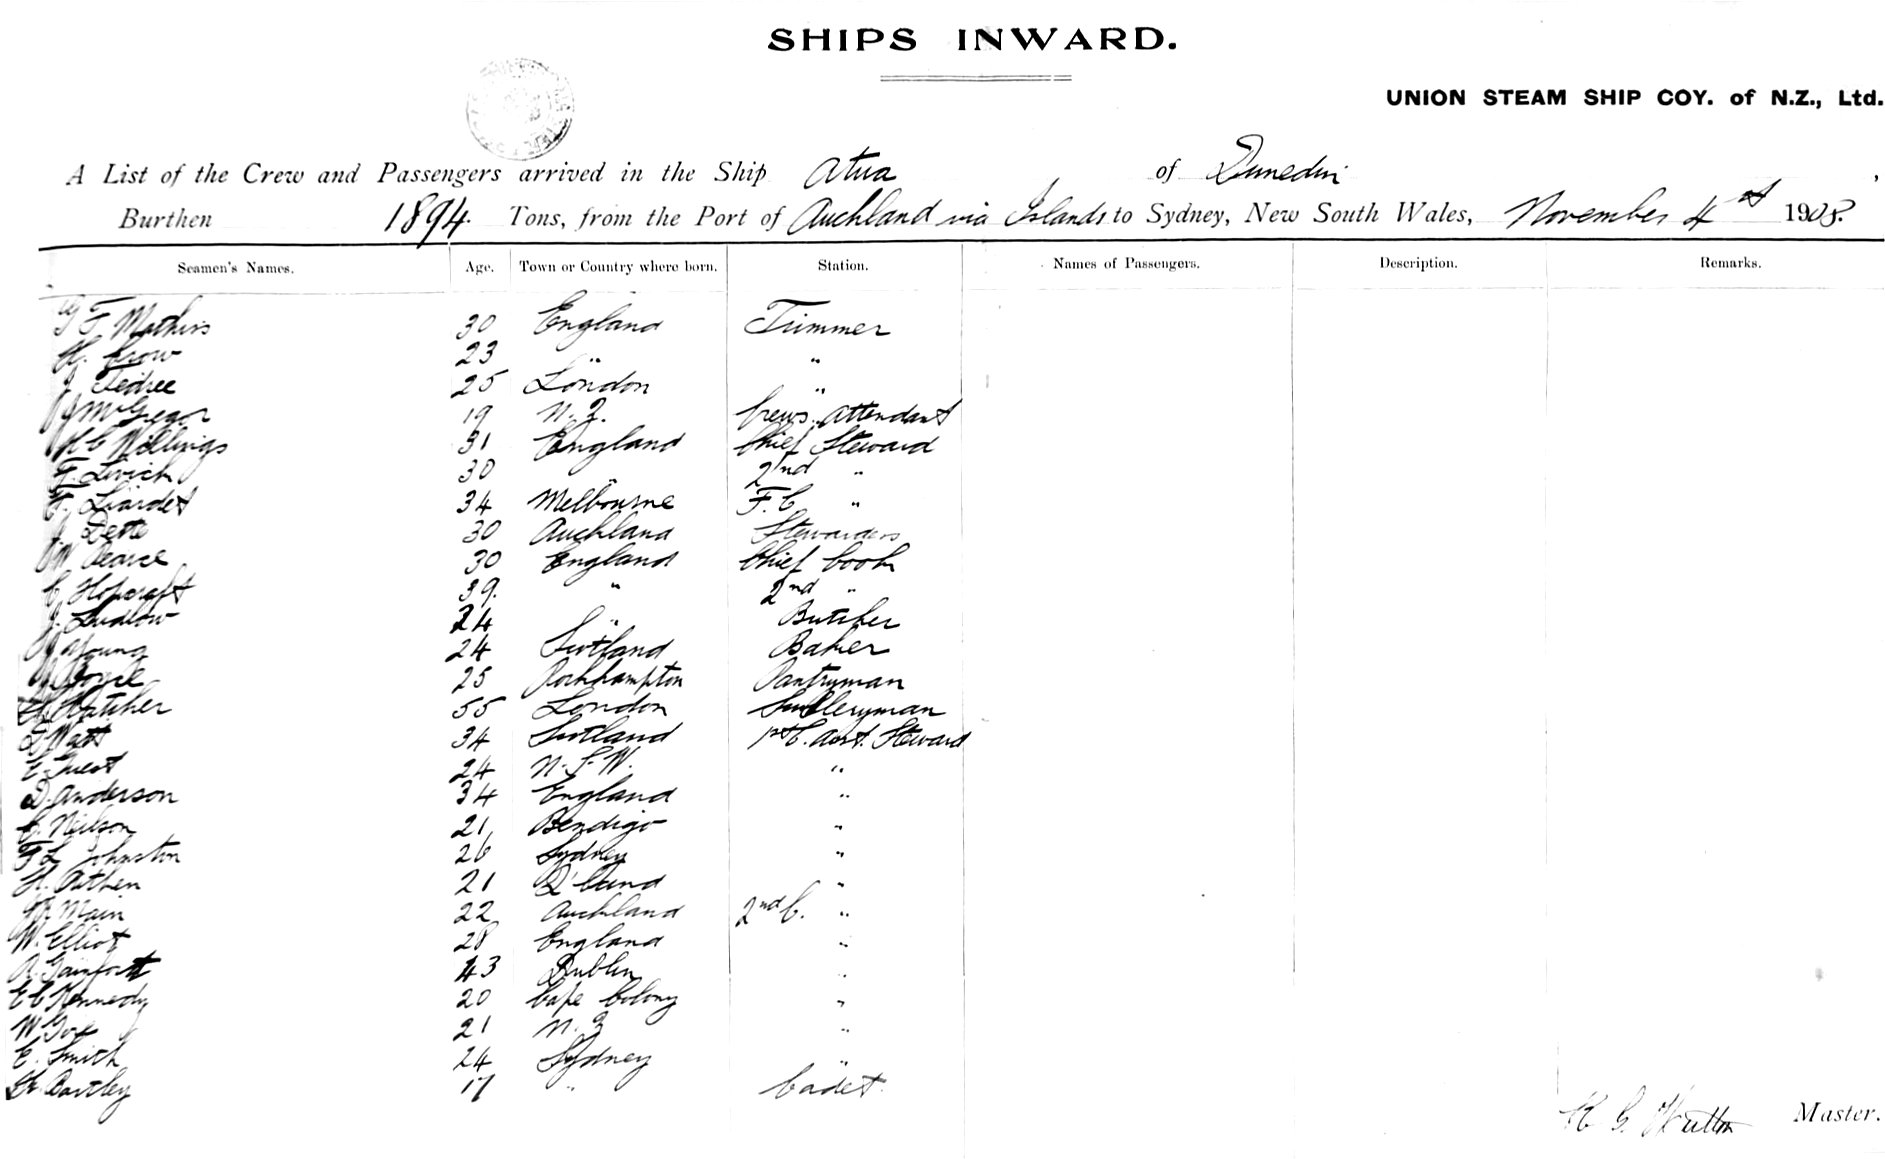 SHIPS INWARD.
UNION STEAM SHIP COY. of N.Z., Ltd.
A List of the Crew and Passengers arrived in the Ship Atua of Dunedin,
Burthen 1894. Tons, from the Port of Auckland via Islands to Sydney, New South Wales, November 4th 1908.
Seamen's Names. Age. Town or Country where born. Station. Names of Passengers. Description. Remarks.
G F Mathews 30 England Trimmer
H. Crow 23 " "
J. 25 London "
J McGregor 19 N.Z. Crews Attendant
H C Willings 31 England Chief Steward
F. 30 " 2nd "
F. Liardet 34 Melbourne F.C "
J. 30 Auckland Stewardess
W Pearce 30 England Chief Cook
C Hopcraft 39. " 2nd "
J. Ludlow 24 " Butcher
J Young 24 Scotland Baker
25 Rockhampton Pantryman
H. Hatcher 55 London Sculleryman
Watt 34 Scotland 1st C. Asst. Steward
E. Guest 24 N.S.W. "
D. Anderson 34 England "
C. Neilson 21 Bendigo "
F L Johnston 26 Sydney "
H. Aitken 21 Q'land "
Main 22 Auckland 2nd C. "
W. Elliot 28 England "
R. Gainfort 43 Dublin "
E C Kennedy 20 Cape Colony "
W 21 N.Z "
E. Smith 24 Sydney "
Bartley 17 " Cadet.
Master.